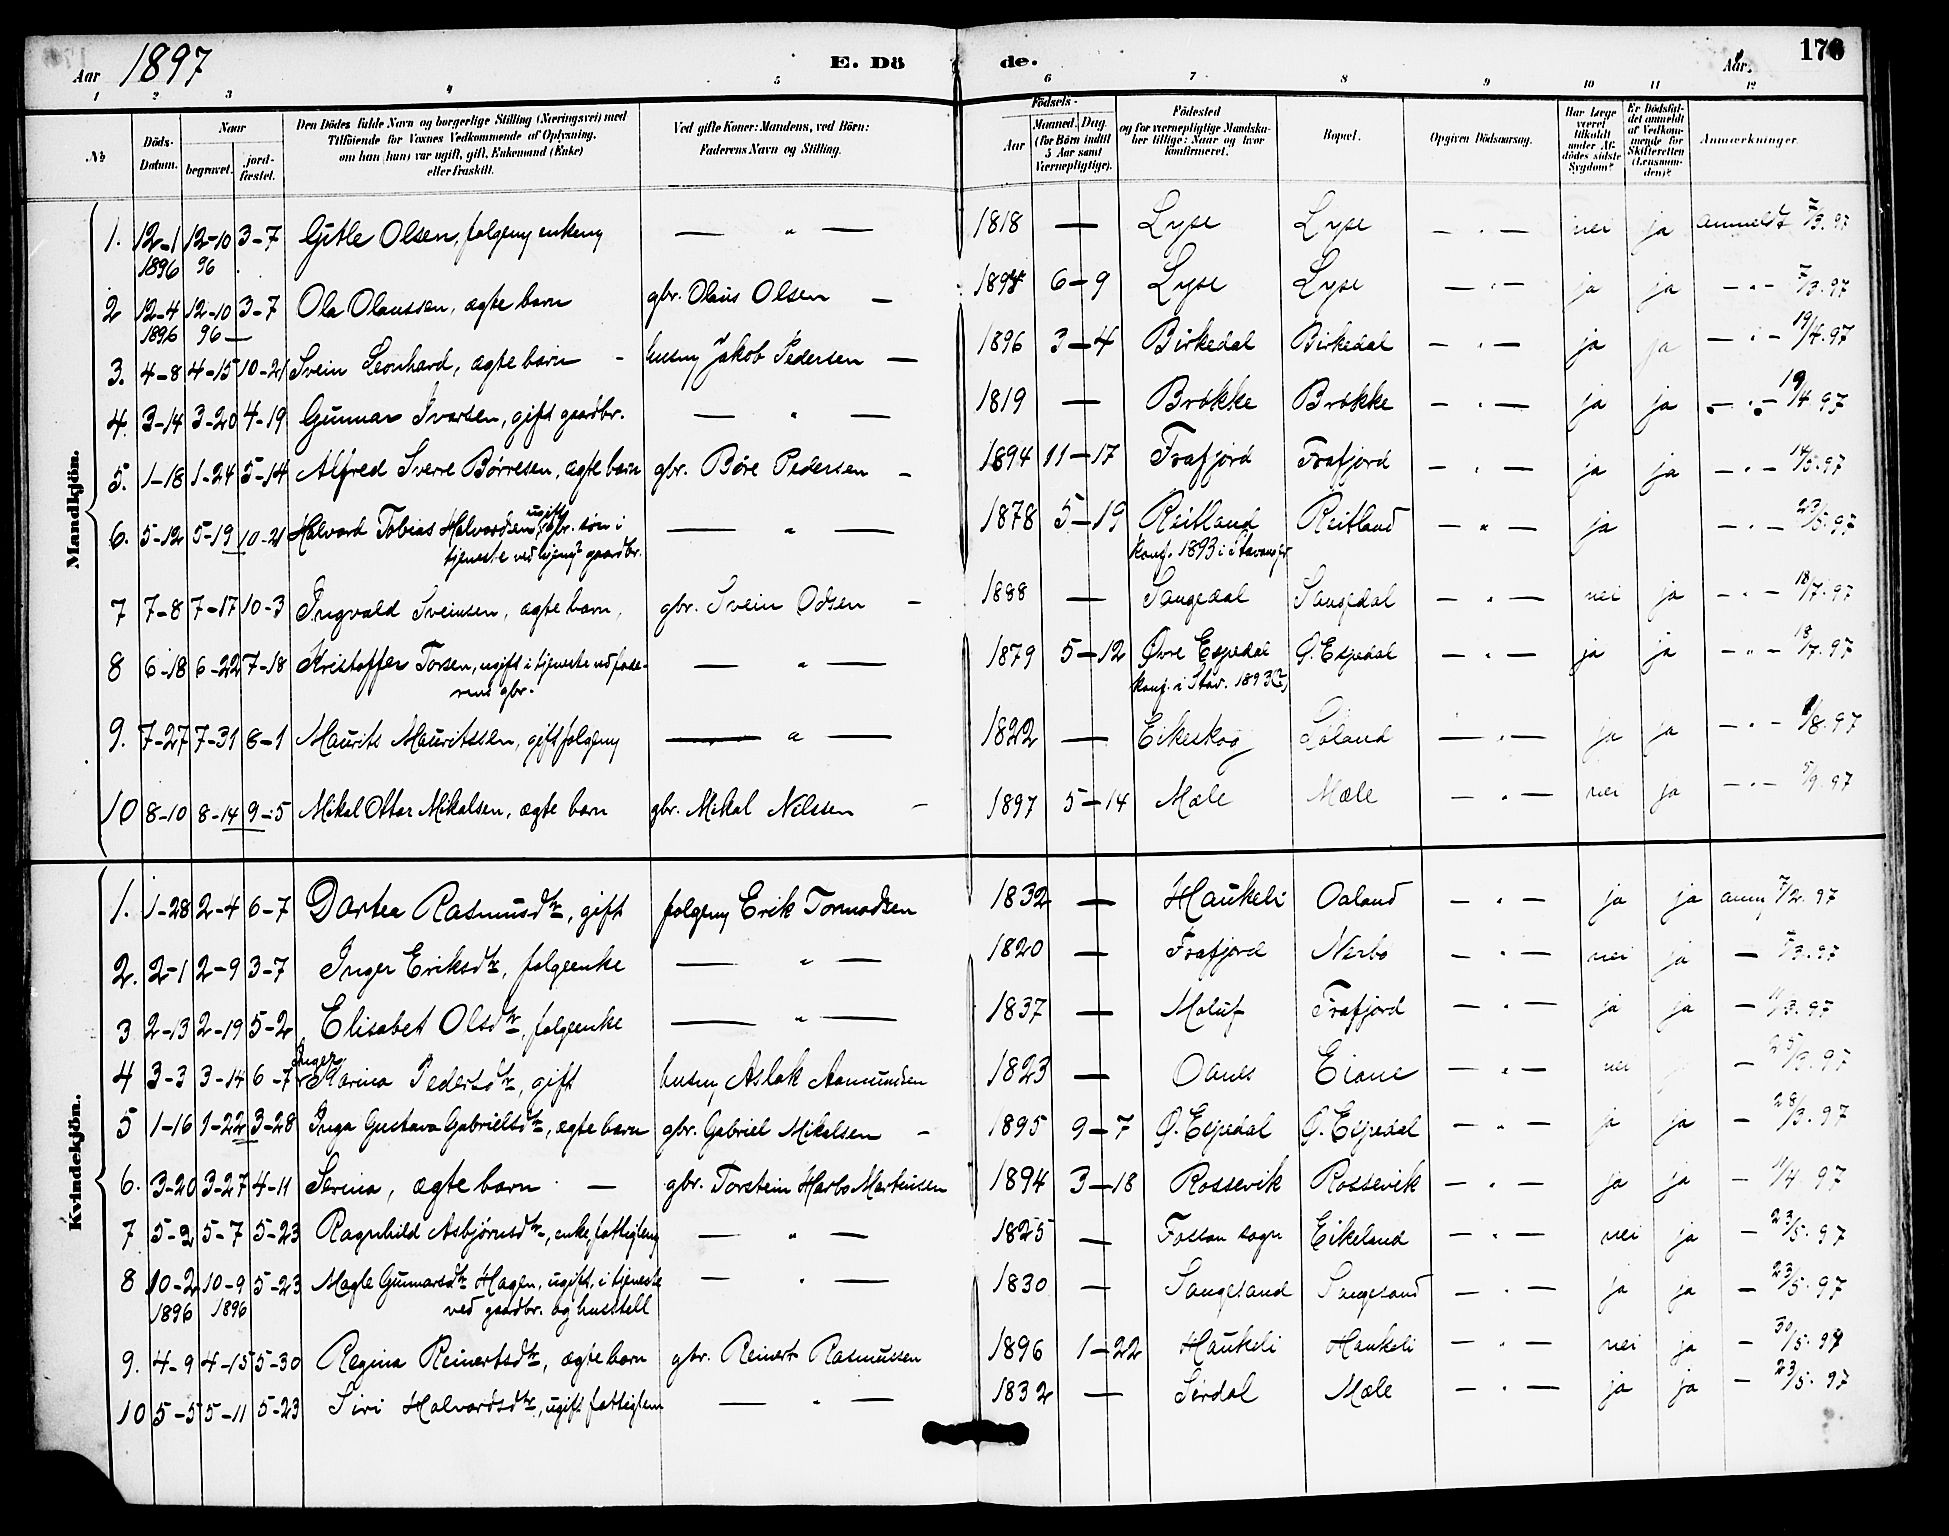 Aar 1897 E. Dö de. Aar. 176
1 2 3 4 5 6 7 8 9 10 11 12
No Döds-Datum. Naar begravet. jord-fæstet. Den Dödes fulde Navn og borgerlige Stilling (Næringsvei) med Tilföiende for Voxnes Vedkommende af Oplysning, om han (hun) var ugift, gift, Enkemand (Enke) eller fraskilt. Ved gifte Koner: Mandens, ved Börn: Faderens Navn og Stilling. Födsels- Aar Maaned. Dag. (for Börn indtil 5 Aar samt Værnepligtige). Födested og for værnepligtige Mandska-ber tillige: Naar og hvor konfirmeret. Bopæl. Opgiven Dödsaarsag. Har Læge været tilkaldt under Af-dödes sidste Sygdom? Er Dödsfal-det anmeldt af Vedkom-mende for Skifteretten (Lensman-den)? Anmærkninger.
Mandkjön.
1. 12-1 12-10 3-7 Gitle Olsen, folgemg enkemg — " — 1818 — Lyse Lyse — " — nei ja anmeldt 7/3. 97
1896 96
2 12-4 12-10 3-7 Ola Olaussen, ægte barn gbr. Olaus Olsen — 1894 6-9 Lyse Lyse — " — ja ja — " — 7/3. 97
1896 96 —
3. 4-8 4-15 10-21 Svein Leonhard, ægte barn - husmg Jakob Pedersen — 1896 3-4 Birkedal Birkedal — " — ja ja — " — 19/4. 97
4. 3-14 3-20 4-19 Gunnar Ivarsen, gift gaardbr. — " — 1819 — Brøkke Brøkke — " — ja ja — " — 19/4 97
5. 1-18 1-24 5-14 Alfred Sverre Børresen, ægte barn gbr. Børe Pedersen - 1894 11-17 Frafjord Frafjord — " — ja ja — " — 14/5. 97
6. 5-12 5-19 10-21 Halvard Tobias Halvardsen, ugift gbr. søn i — " — 1878 5-19 Reitland Reitland — " — ja — " — 23/5. 97
tjeneste ved gaardbr. konf. 1893 i Stavanger
7 7-8 7-17 10-3 Ingvald Sveinsen, ægte barn, gbr. Svein Odsen - 1888 — Sangedal Sangedal — " — nei ja — " — 18/7. 97
8 6-18 6-22 7-18 Kristoffer Torsen, ugift i tjeneste ved fade- — " — 1879 5-12 Øvre Espedal Ø. Espedal — " — ja ja — " — 18/7. 97
rens gbr. konf. i Stav. 1893(?)
9. 7-27 7-31 8-1 Maurits Mauritssen, gift folgemg — " — 1822 — Eikeskog Løland — " — ja ja — " — 1/8. 97
10 8-10 8-14 9-5 Mikal Ottar Mikalsen, ægte barn gbr. Mikal Nilssen - 1897 5-14 Mæle Mæle — " — nei ja — " — 5/9. 97
Kvindekjön.
1. 1-28 2-4 6-7 Dortea Rasmusdtr, gift folgemg Erik Tormodsen 1832 — Haukeli Oaland — " — ja ja anm 7/2. 97
2. 2-1 2-9 3-7 Inger Eriksdtr, folgeenke — " — 1820 — Frafjord Nerbø — " — nei ja — 7/3. 97
3 2-13 2-19 5-2 Elisabet Olsdtr, folgeenke — " — 1837 — Moluf Frafjord — " — ja ja — /3. 97
4 3-3 3-14 6-7 Inger Karina Pedersdtr, gift husmg Aslak Aamundsen 1823 — Oanes Eiane — " — nei — 25/3. 97
5 1-16 1-22 3-28 Inga Gustava Gabrielsdtr, ægte barn gbr. Gabriel Mikalsen - 1895 9-7 Ø. Espedal Ø. Espedal — " — ja ja — 28/3. 97
6. 3-20 3-27 4-11 Serina, ægte barn — gbr. Torstein Harbo Martinsen 1894 3-18 Rossevik Rossevik — " — ja ja — 11/4 97
7 5-2 5-7 5-23 Ragnhild Asbjørnsdtr, enke, fattiglem — " — 1825 — Fossan sogn Eikeland — " — nei ja — 23/5. 97
8 10-2 10-9 5-23 Magle Gunnarsdtr Hagen, ugift, i tjeneste — " — 1830 — Sangesand Sangesand — " — ja ja — 23/5. 97
1896 1896 ved gaardbr. og husstell
9. 4-9 4-15 5-30 Regina Reinertsdtr, ægte barn gbr. Reinert Rasmussen 1896 1-22 Haukeli Haukeli — " — nei ja — 30/5. 97
10 5-5 5-11 5-23 Siri Halvardsdtr, ugift fattiglem — " — 1832 — Sirdal Mæle — " — ja ja — 23/5. 97